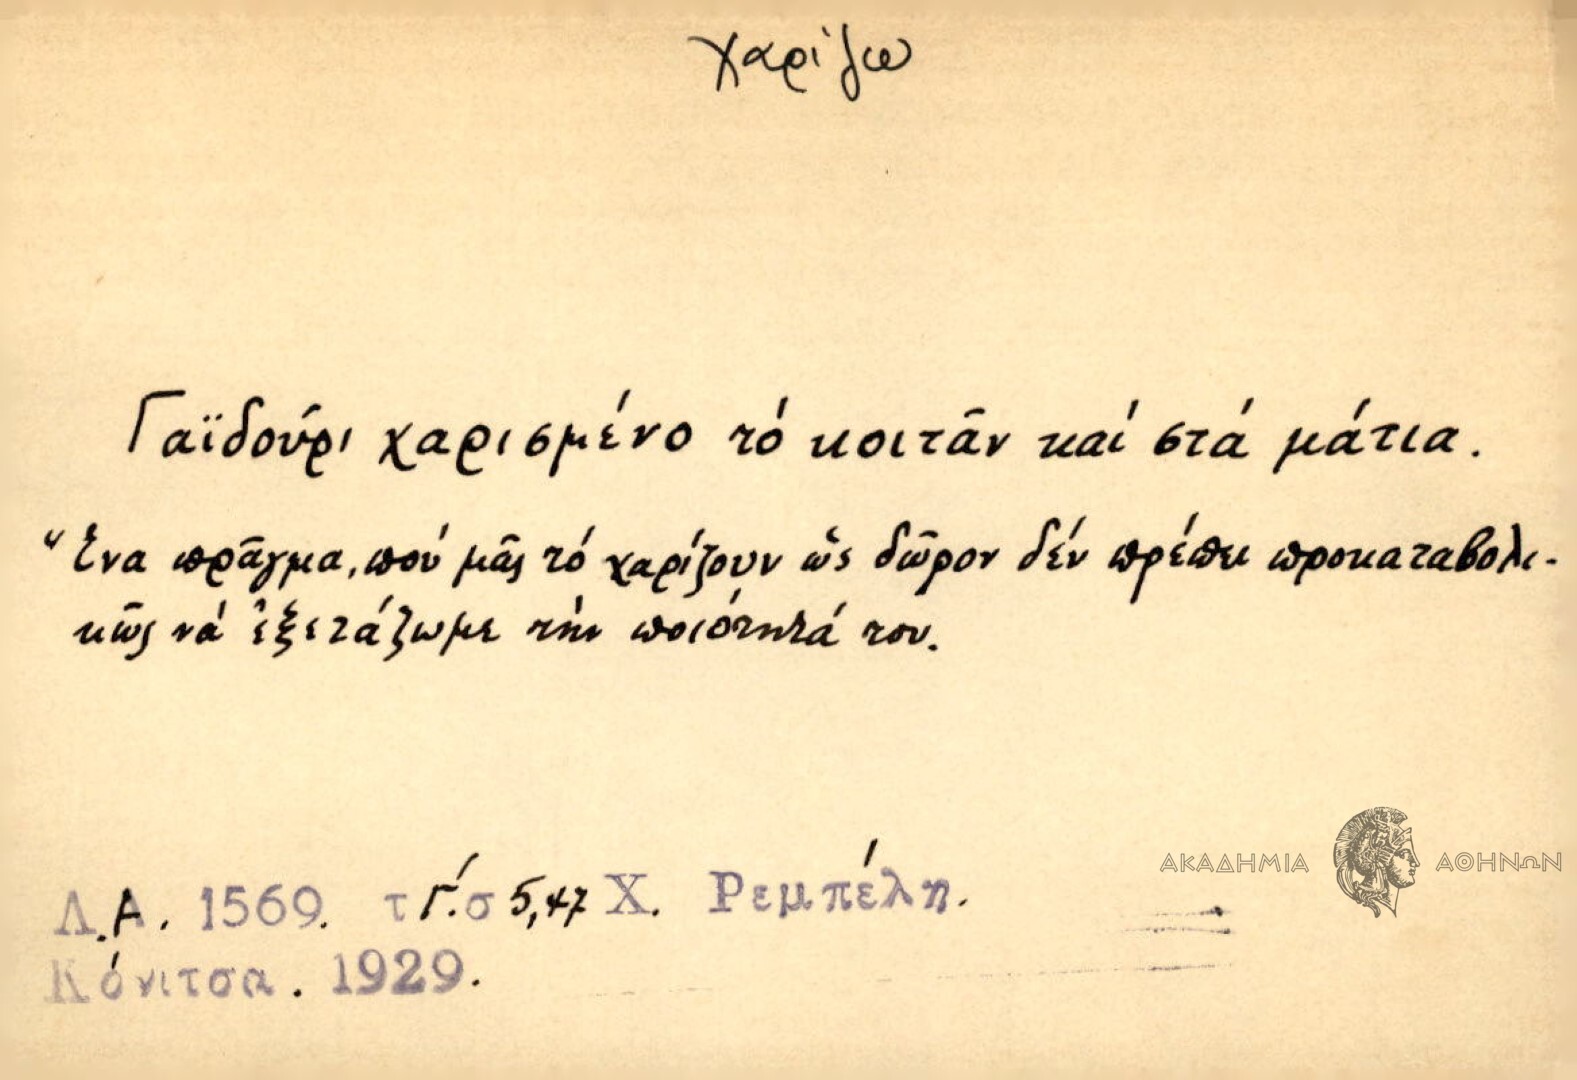 χαρίζω
Γαϊδοῦρι χαρισμένο τό κοιτᾶν καί στά μάτια.
"Ενα πρᾶγμα, πού μᾶς τό χαρίζουν ὡς δῶρον δέν πρέπει προκαταβολι-
κῶς νά ἐξετάζωμε τήν ποιότητά του.
Λ.Α. 1569. τ Γ΄. σ 5,47 Χ. Ρεμπέλη.
Κόνιτσα. 1929.
ΑΚΑΔΗΜΙΑ ΑΘΗΝΩΝ